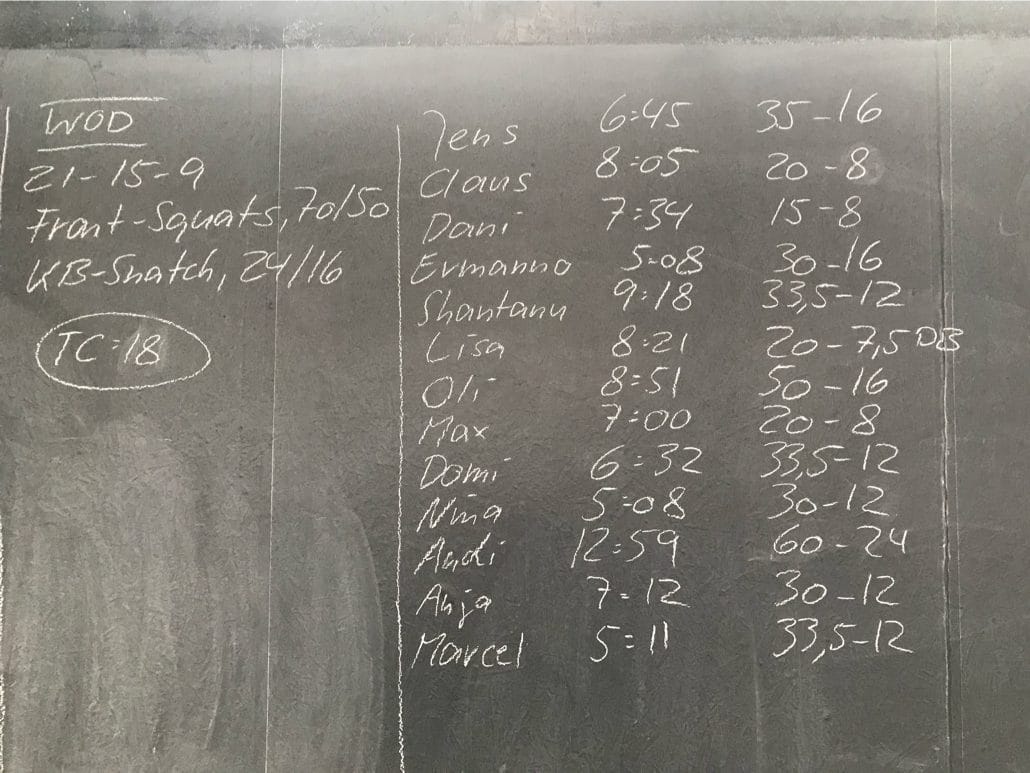 WOD
21-15-9
Front-Squats, 70/50
KB-Snatch, 24/16
TC=18
Jens 6:45 35-16
Claus 8:05 20-8
Dani 7:34 15-8
Ermanno 5:08 30-16
Shantanu 9:18 33,5-12
Lisa 8:21 20-7,5 DB
Oli 8:51 50-16
Max 7:00 20-8
Domi 6:32 33,5-12
Nina 5:08 30-12
Andi 12:59 60-24
Anja 7:12 30-12
Marcel 5:11 33,5-12